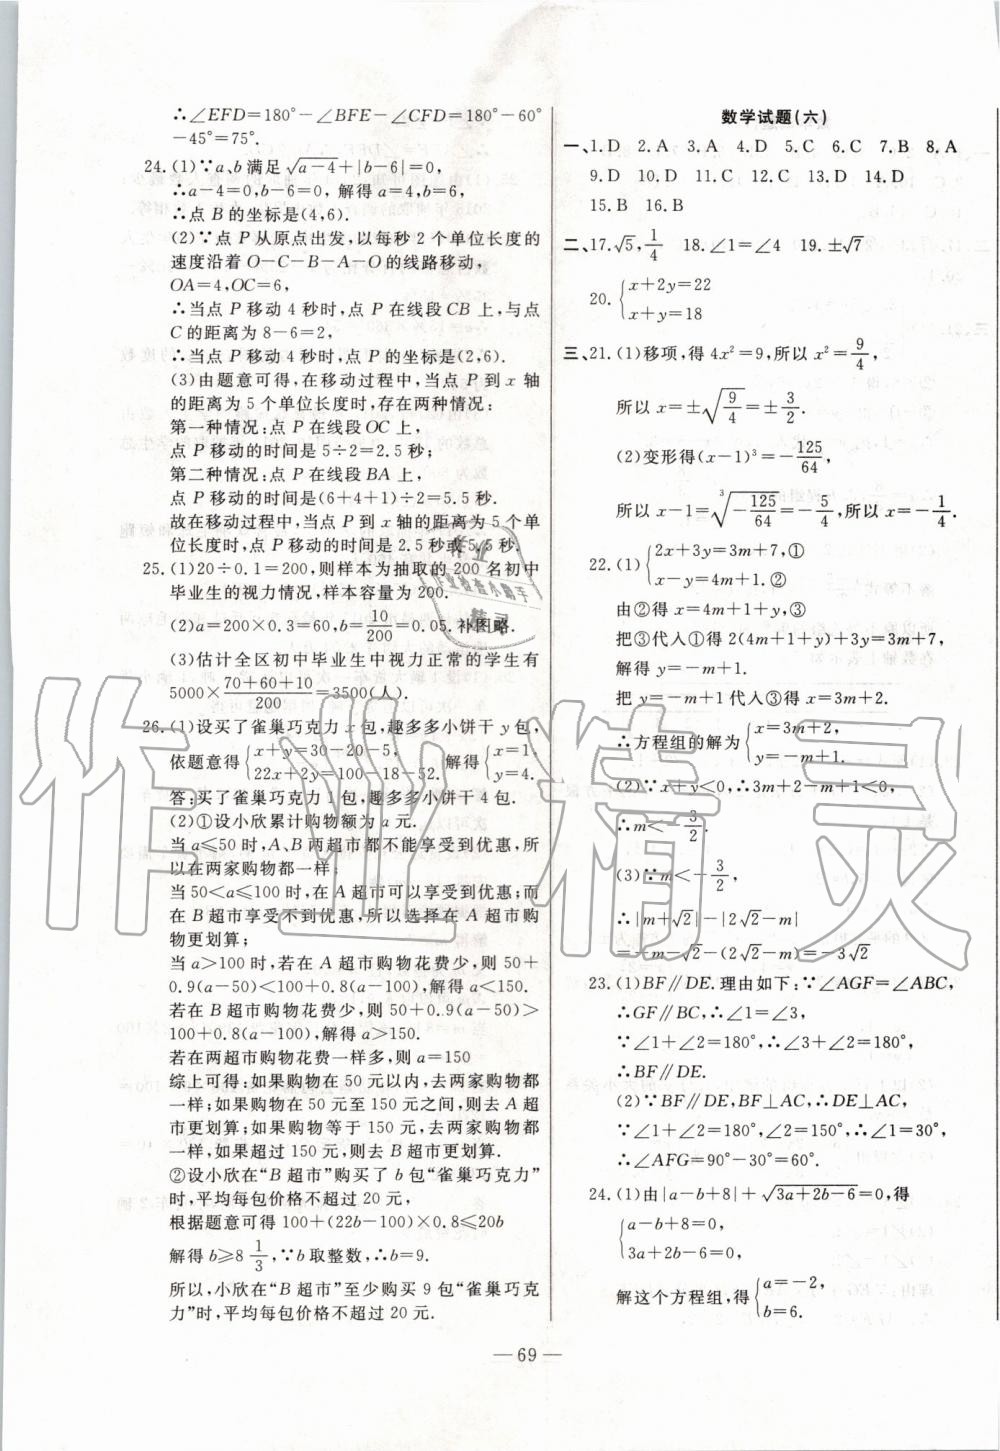 ∴∠EFD=180°－∠BFE－∠CFD=180°－60°
－45°=75°.
24. (1)∵a、b满足√(a－4)+|b－6|=0,
∴a－4=0,b－6=0, 解得a=4,b=6,
∴点 B 的坐标是(4,6).
(2)∵点 P 从原点出发,以每秒 2 个单位长度的
速度沿着 O－C－B－A－O 的线路移动,
OA=4,OC=6,
∴当点 P 移动 4 秒时,点 P 在线段 CB 上,与点
C 的距离为 8－6=2,
∴当点 P 移动 4 秒时,点 P 的坐标是(2,6).
(3)由题意可得,在移动过程中,当点 P 到 x 轴
的距离为 5 个单位长度时,存在两种情况:
第一种情况:点 P 在线段 OC 上,
点 P 移动的时间是 5÷2=2.5 秒.
第二种情况:点 P 在线段 BA 上,
点 P 移动的时间是(6+4+1)÷2=5.5 秒.
故在移动过程中,当点 P 到 x 轴的距离为 5 个单
位长度时,点 P 移动的时间是 2.5 秒或 5.5 秒.
25. (1)20÷0.1=200,则样本为抽取的 200 名初中
毕业生的视力情况,样本容量为 200.
(2)a=200×0.3=60,b=10/200=0.05. 补图略.
(3)估计全区初中毕业生中视力正常的学生有
5000×(70+60+10)/200=3500(人).
26. (1)设买了雀巢巧克力 x 包,趣多多小饼干 y 包,
依题意得{x+y=30－20－5, 22x+2y=100－18－52. 解得{x=1, y=4.
答:买了雀巢巧克力 1 包,趣多多小饼干 4 包.
(2)①设小欣累计购物额为 a 元.
当 a≤50 时,A、B 两超市都不能享受到优惠;所
以在两家购物都一样;
当 50<a≤100 时,在 A 超市可以享受到优惠;而
在 B 超市享受不到优惠,所以选择在 A 超市购
物更划算;
当 a>100 时,若在 A 超市购物花费少,则 50+
0.9(a－50)<100+0.8(a－100),解得 a<150.
若在 B 超市购物花费少,则 50+0.9(a－50)>
100+0.8(a－100),解得 a>150.
若在两超市购物花费一样多,则 a=150
综上可得:如果购物在 50 元以内,去两家购物都
一样;如果购物在 50 元至 150 元之间,则去 A 超
市更划算;如果购物等于 150 元,去两家购物都一
样;如果超过 150 元,则去 B 超市更划算.
②设小欣在“B 超市”购买了 b 包“雀巢巧克力”
时,平均每包价格不超过 20 元,
根据题意可得 100+(22b－100)×0.8≤20b
解得 b≥8 1/3,∵b 取整数,∴b=9.
所以,小欣在“B 超市”至少购买 9 包“雀巢巧克
力”时,平均每包价格不超过 20 元.
数学试题(六)
一、1.D 2.A 3.A 4.D 5.C 6.C 7.B 8.A
9.D 10.D 11.C 12.C 13.D 14.D
15.B 16.B
二、17.√5,1/4 18.∠1=∠4 19.±√7
20. {x+2y=22 x+y=18
三、21. (1)移项,得 4x²=9,所以 x²=9/4,
所以 x=±√(9/4)=±3/2.
(2)变形得(x－1)³=－125/64,
所以 x－1=³√(－125/64)=－5/4,所以 x=－1/4.
22. (1){2x+3y=3m+7,① x－y=4m+1.②
由②得x=4m+1+y,③
把③代入①得 2(4m+1+y)+3y=3m+7,
解得 y=－m+1.
把 y=－m+1 代入③得 x=3m+2.
∴方程组的解为{x=3m+2, y=－m+1.
(2)∵x+y<0,∴3m+2－m+1<0,
∴m<－3/2.
(3)∵m<－3/2,
∴|m+√2|－|2√2－m|
=－m－√2－(2√2－m)=－3√2
23. (1)BF∥DE.理由如下:∵∠AGF=∠ABC,
∴GF∥BC,∴∠1=∠3,
∵∠1+∠2=180°,∴∠3+∠2=180°,
∴BF∥DE.
(2)∵BF∥DE,BF⊥AC,∴DE⊥AC,
∵∠1+∠2=180°,∠2=150°,∴∠1=30°,
∴∠AFG=90°－30°=60°.
24. (1)由|a－b+8|+√(3a+2b－6)=0,得
{a－b+8=0, 3a+2b－6=0,
解这个方程组,得{a=－2, b=6.
— 69 —
作业精灵